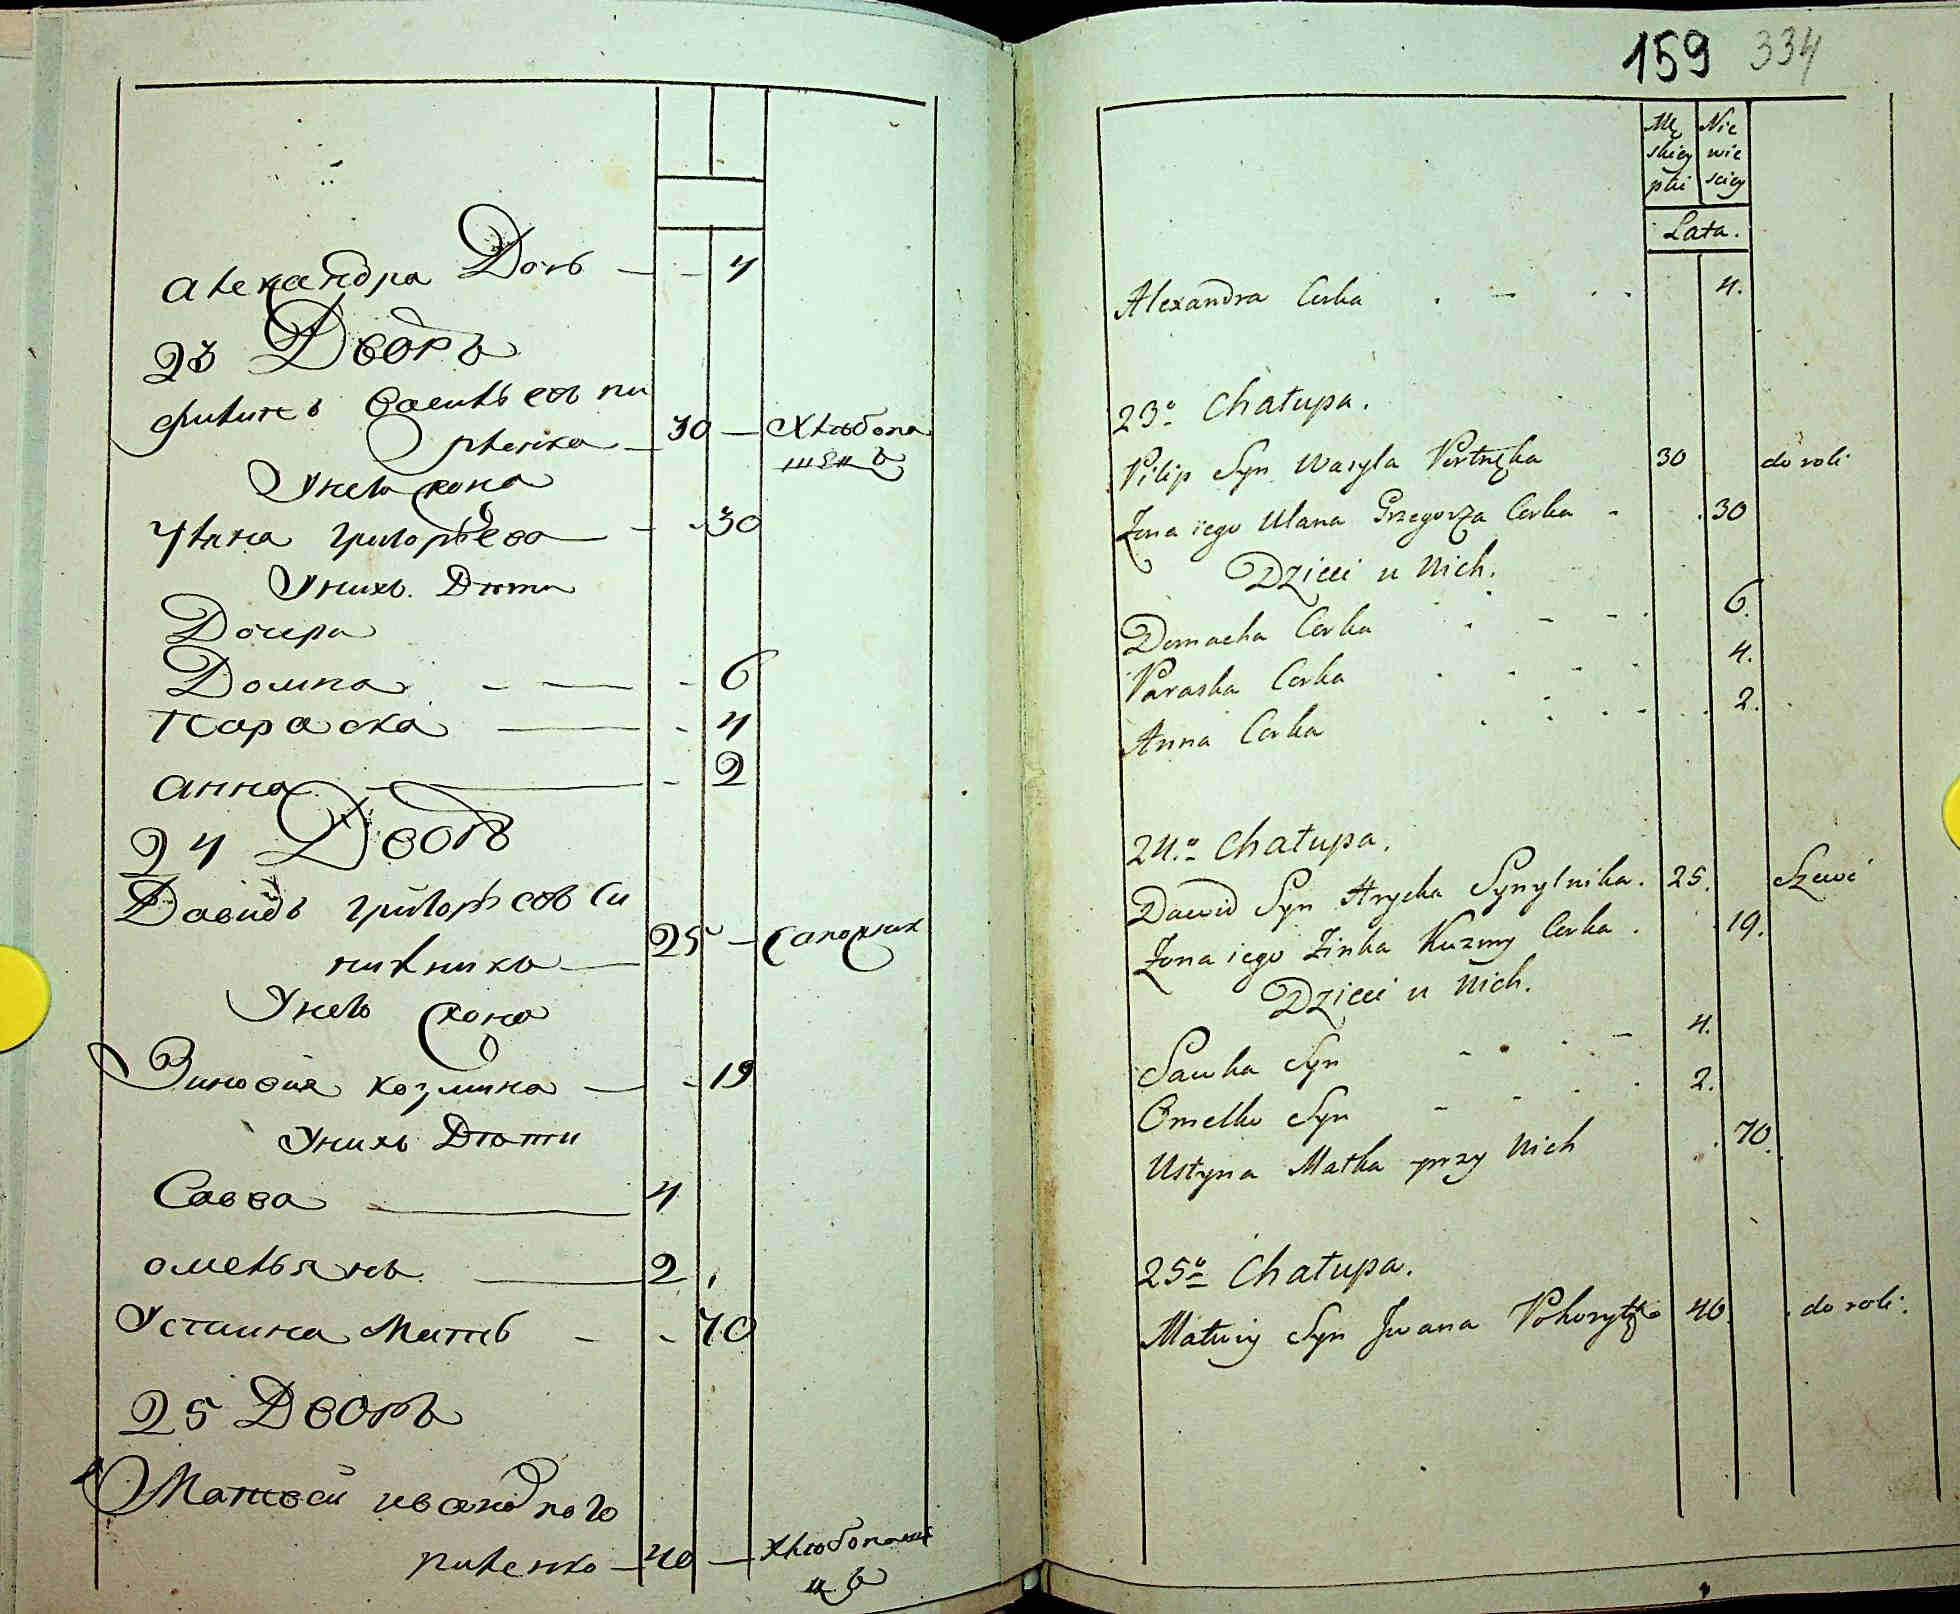 Александра Дочь — - 4
23 Дворъ
Филипъ Васильевъ пи
рленко — 30 — Хлѣбопа
шецъ
У него жона
Уляна григорьева — - 30
У нихъ Дѣти
Дочери
Домна - — - 6
Параска — - 4
анна — - 2
24 Дворъ
Давидъ григорьевъ Си
нилника — 25 — Сапожник
У него жона
Зиновия козмина — - 19
У нихъ Дѣти
Савва — 4
омельянъ — 2
Устина Мать - - 70
25 Дворъ
Матвей иванов пого
риленко — 40 — хлебопаше
цъ
159 334
Mę Nie
skiey wie
płci sciey
Lata.
Alexandra Corka 4.
23o Chałupa.
Filip Syn Wasyla 30 do roli
Zona iego Ulana Grzegorza Corka - 30
Dzieci u Nich.
Domacha Corka 6.
Paraska Corka 4.
Anna Corka 2.
24.o Chałupa.
Dawid Syn Hrycka Synylnika. 25. Szewc
Zona iego Zinka Kuzmy Corka . 19.
Dzieci u Nich.
Sawka Syn 4.
Omelko Syn 2.
Ustyna Matka przy Nich 70.
25o Chałupa.
Matwiy Syn Jwana 40. do roli.